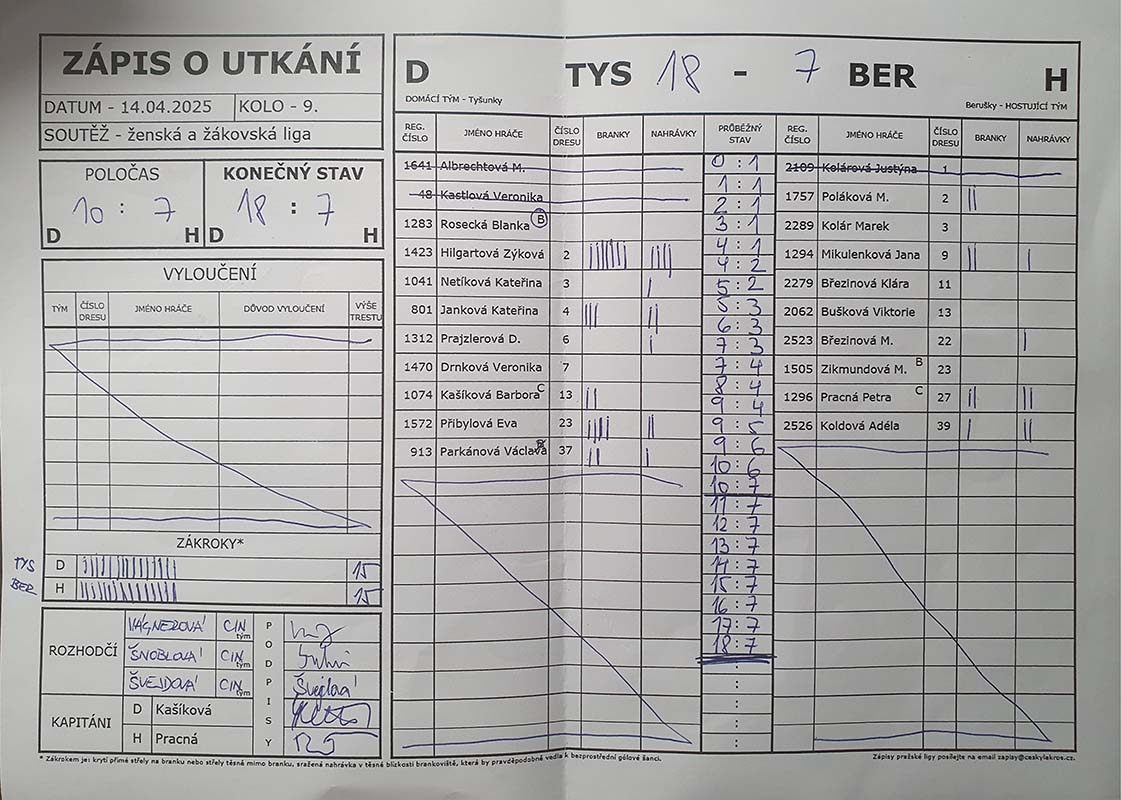 ZÁPIS O UTKÁNÍ
DATUM - 14.04.2025 KOLO - 9.
SOUTĚŽ - ženská a žákovská liga
POLOČAS KONEČNÝ STAV
10 : 7 18 : 7
D H D H
VYLOUČENÍ
TÝM ČÍSLO DRESU JMÉNO HRÁČE DŮVOD VYLOUČENÍ VÝŠE TRESTU
ZÁKROKY*
TYS D 15
BER H 15
ROZHODČÍ
VÁGNEROVÁ CIN tým
ŠNOBLOVÁ CIN tým
ŠVEJDOVÁ CIN tým Švejdová
PODPISY
KAPITÁNI
D Kašíková
H Pracná
D TYS 18 - 7 BER H
DOMÁCÍ TÝM - Tyšunky Berušky - HOSTUJÍCÍ TÝM
REG. ČÍSLO JMÉNO HRÁČE ČÍSLO DRESU BRANKY NAHRÁVKY PRŮBĚŽNÝ STAV REG. ČÍSLO JMÉNO HRÁČE ČÍSLO DRESU BRANKY NAHRÁVKY
1641 Albrechtová M.
48 Kastlová Veronika
1283 Rosecká Blanka B
1423 Hilgartová Zýková 2
1041 Netíková Kateřina 3
801 Janková Kateřina 4
1312 Prajzlerová D. 6
1470 Drnková Veronika 7
1074 Kašíková Barbora C 13
1572 Přibylová Eva 23
913 Parkánová Václava 37
0 : 1
1 : 1
2 : 1
3 : 1
4 : 1
4 : 2
5 : 2
5 : 3
6 : 3
7 : 3
7 : 4
8 : 4
9 : 4
9 : 5
9 : 6
10 : 6
10 : 7
11 : 7
12 : 7
13 : 7
14 : 7
15 : 7
16 : 7
17 : 7
18 : 7
:
:
:
:
2109 Kolárová Justýna 1
1757 Poláková M. 2
2289 Kolár Marek 3
1294 Mikulenková Jana 9
2279 Březinová Klára 11
2062 Bušková Viktorie 13
2523 Březinová M. 22
1505 Zikmundová M. B 23
1296 Pracná Petra C 27
2526 Koldová Adéla 39
* Zákrokem je: krytí přímé střely na branku nebo střely těsně mimo branku, sražená nahrávka v těsné blízkosti brankoviště, která by pravděpodobně vedla k bezprostřední gólové šanci.
Zápisy pražské ligy posílejte na email zapisy@ceskylakros.cz.